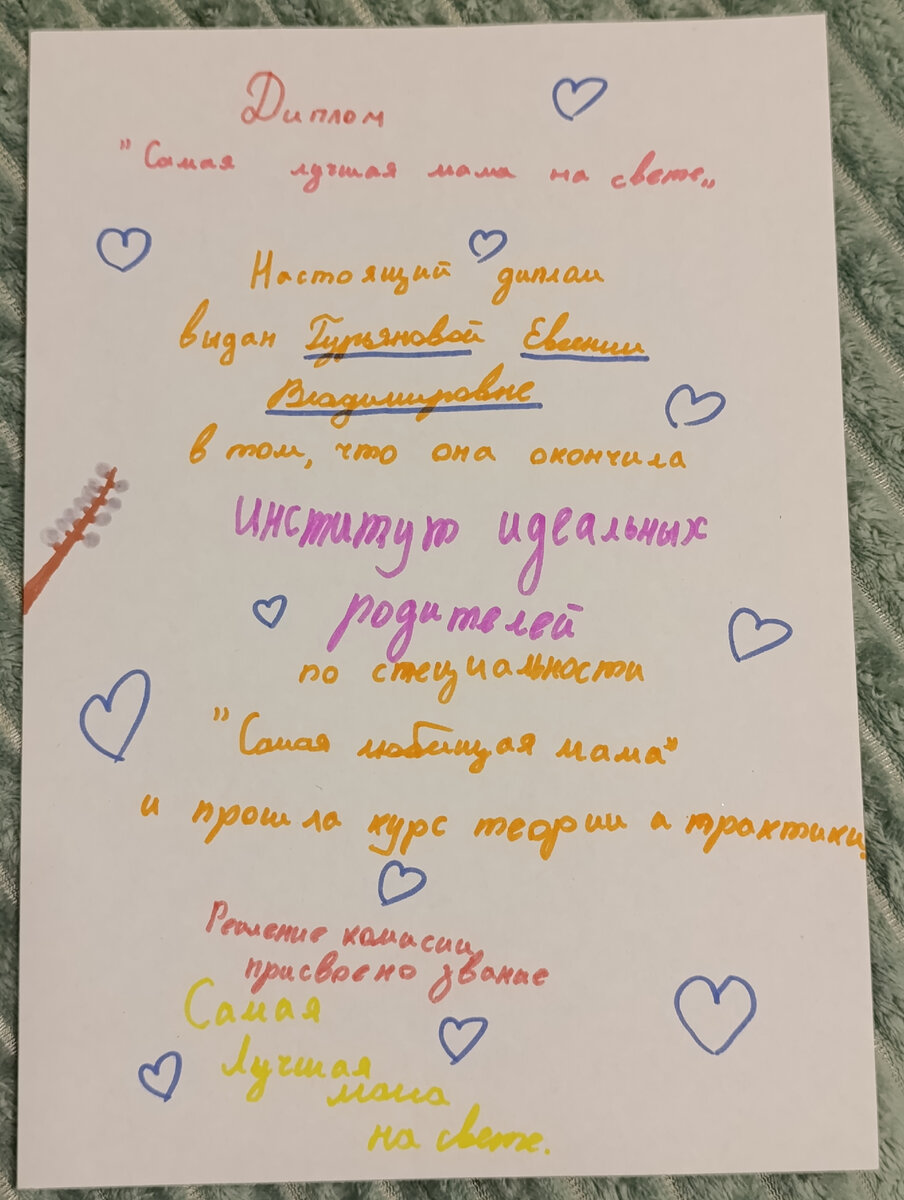 Диплом
"Самая лучшая мама на свете„
Настоящий диплом
выдан Гурьяновой Евгении
Владимировне
в том, что она окончила
институт идеальных
родителей
по специальности
"Самая любящая мама"
и прошла курс теории и практики.
Решение комисии
присвоено звание
Самая
Лучшая
мама
на свете.